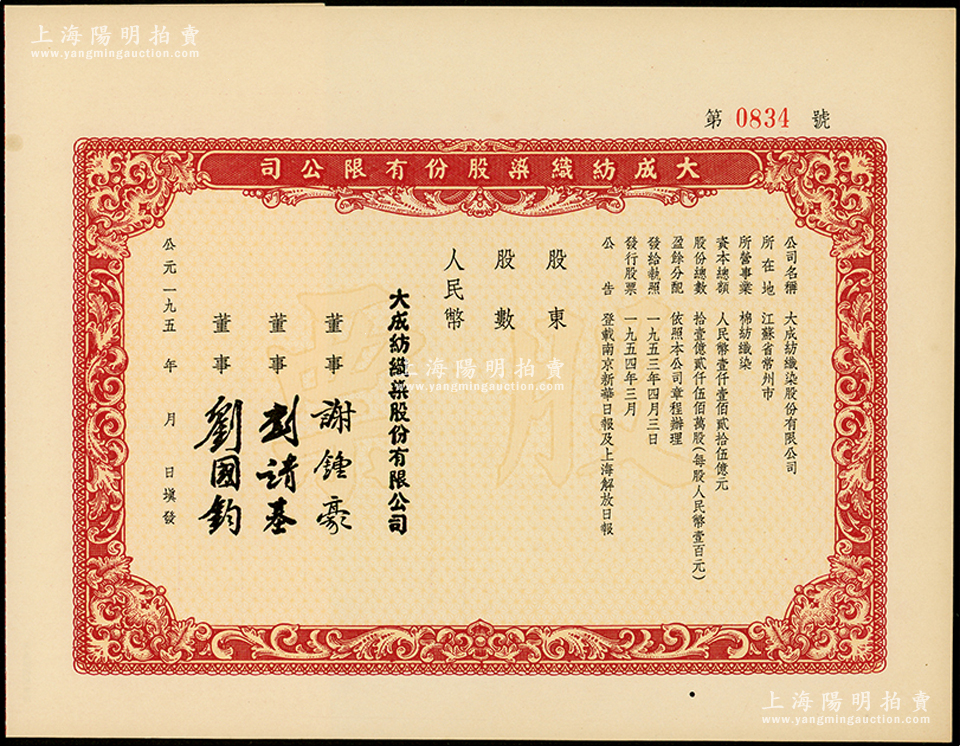 上海陽明拍賣
www.yangmingauction.com
第 0834 號
大成紡織染股份有限公司
公司名稱 大成紡織染股份有限公司
所在地 江蘇省常州市
所營事業 棉紡織染
資本總額 人民幣壹仟壹佰貳拾伍億元
股份總數 拾壹億貳仟伍佰萬股(每股人民幣壹百元)
盈餘分配 依照本公司章程辦理
發給執照 一九五三年四月三日
發行股票 一九五四年三月
公告 登載南京新華日報及上海解放日報
股東
股數
人民幣
大成紡織染股份有限公司
董事 謝鍾豪
董事 劉靖基
董事 劉國鈞
公元一九五 年 月 日塡發
股票
上海陽明拍賣
www.yangmingauction.com
上海陽明拍賣
www.yangmingauction.com